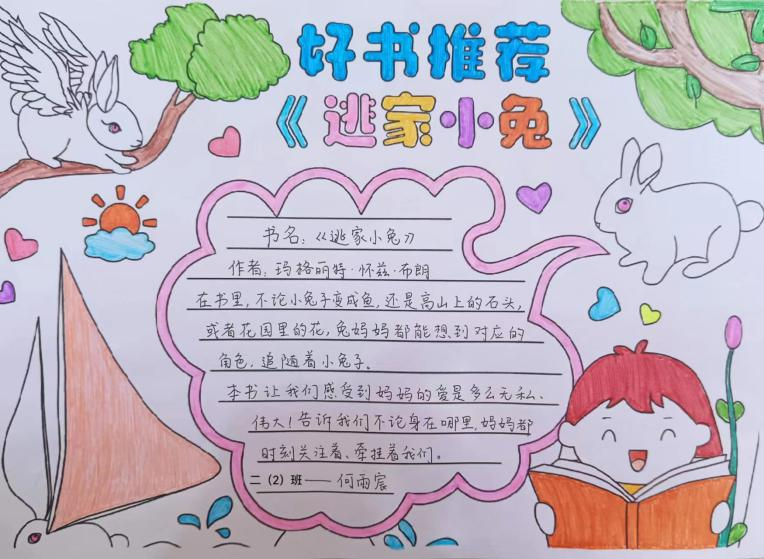 好书推荐
《逃家小兔》
书名:《逃家小兔》
作者:玛格丽特·怀兹·布朗
在书里,不论小兔子变成鱼,还是高山上的石头,
或者花园里的花,兔妈妈都能想到对应的
角色,追随着小兔子。
本书让我们感受到妈妈的爱是多么无私、
伟大!告诉我们不论身在哪里,妈妈都
时刻关注着、牵挂着我们。
二(2)班——何雨宸